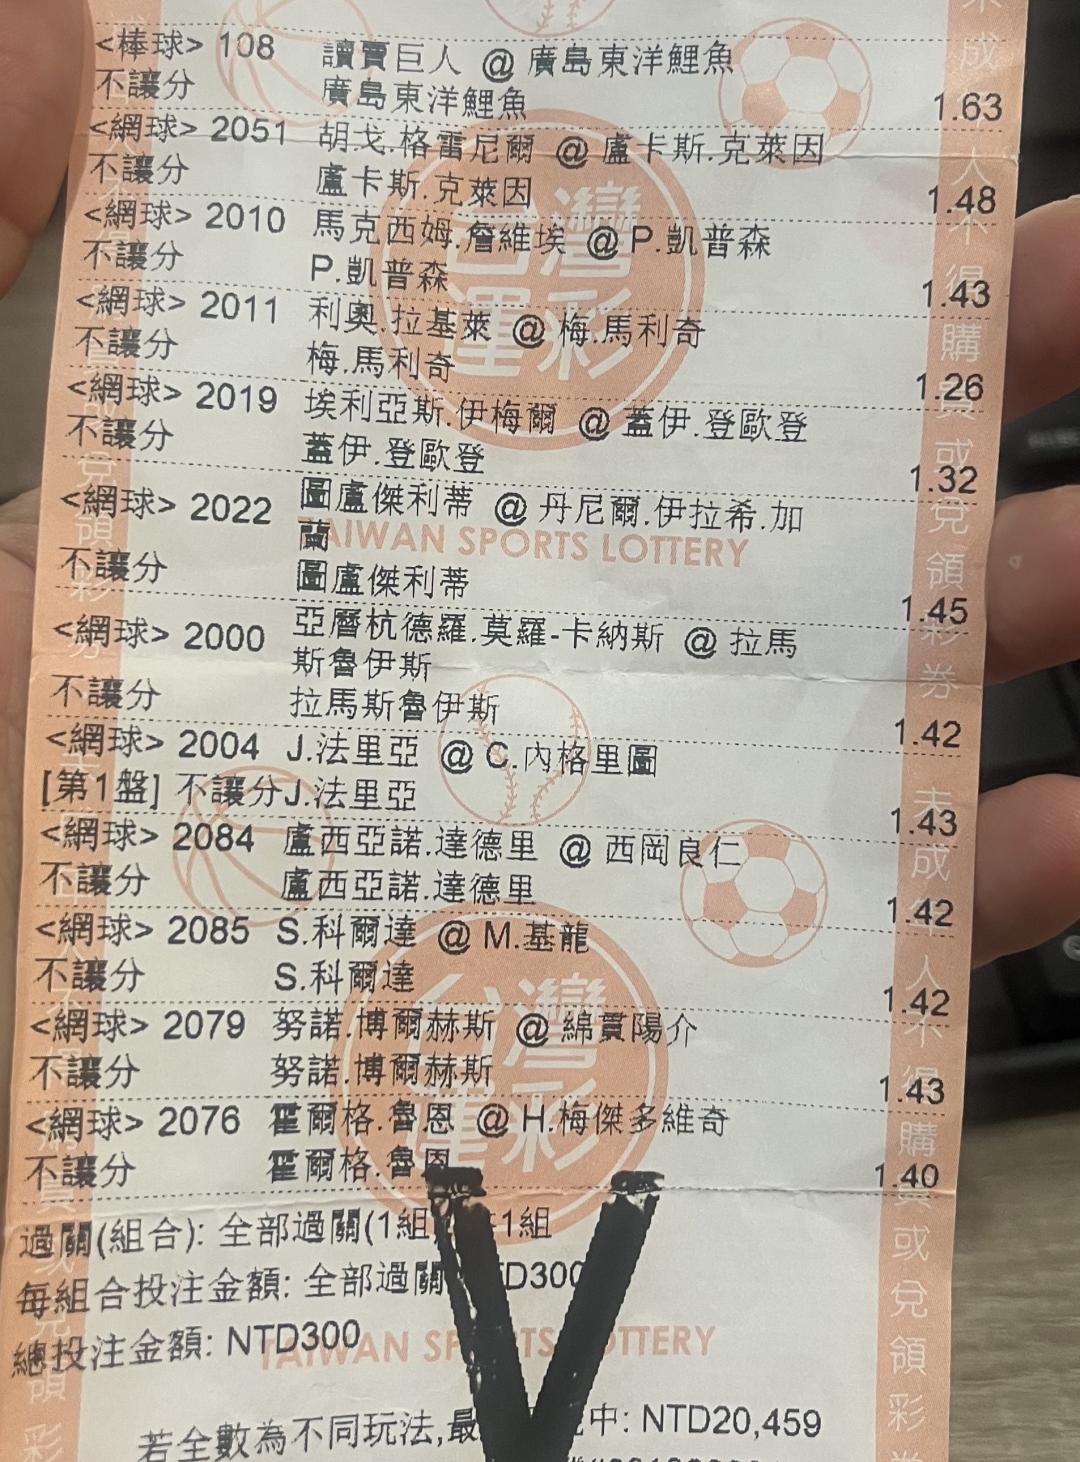 <棒球> 108 讀賣巨人 @ 廣島東洋鯉魚
不讓分 廣島東洋鯉魚 1.63
<網球> 2051 胡戈.格雷尼爾 @ 盧卡斯.克萊因
不讓分 盧卡斯.克萊因 1.48
<網球> 2010 馬克西姆.詹維埃 @ P.凱普森
不讓分 P.凱普森 1.43
<網球> 2011 利奧.拉基萊 @ 梅.馬利奇
不讓分 梅.馬利奇 1.26
<網球> 2019 埃利亞斯.伊梅爾 @ 蓋伊.登歐登
不讓分 蓋伊.登歐登 1.32
<網球> 2022 圖盧傑利蒂 @ 丹尼爾.伊拉希.加
蘭
TAIWAN SPORTS LOTTERY
不讓分 圖盧傑利蒂 1.45
<網球> 2000 亞曆杭德羅.莫羅-卡納斯 @ 拉馬
斯魯伊斯
不讓分 拉馬斯魯伊斯 1.42
<網球> 2004 J.法里亞 @ C.內格里圖
[第1盤] 不讓分J.法里亞 1.43
<網球> 2084 盧西亞諾.達德里 @ 西岡良仁
不讓分 盧西亞諾.達德里 1.42
<網球> 2085 S.科爾達 @ M.基龍
不讓分 S.科爾達 1.42
<網球> 2079 努諾.博爾赫斯 @ 綿貫陽介
不讓分 努諾.博爾赫斯 1.43
<網球> 2076 霍爾格.魯恩 @ H.梅傑多維奇
不讓分 霍爾格.魯恩 1.40
過關(組合): 全部過關(1組 1組
每組合投注金額: 全部過關 D300
總投注金額: NTD300
TAIWAN SPORTS LOTTERY
若全數為不同玩法,最 中: NTD20,459
台灣運彩
台灣運彩
成人不得購買或兌領彩券
未成年人不得購買或兌領彩券